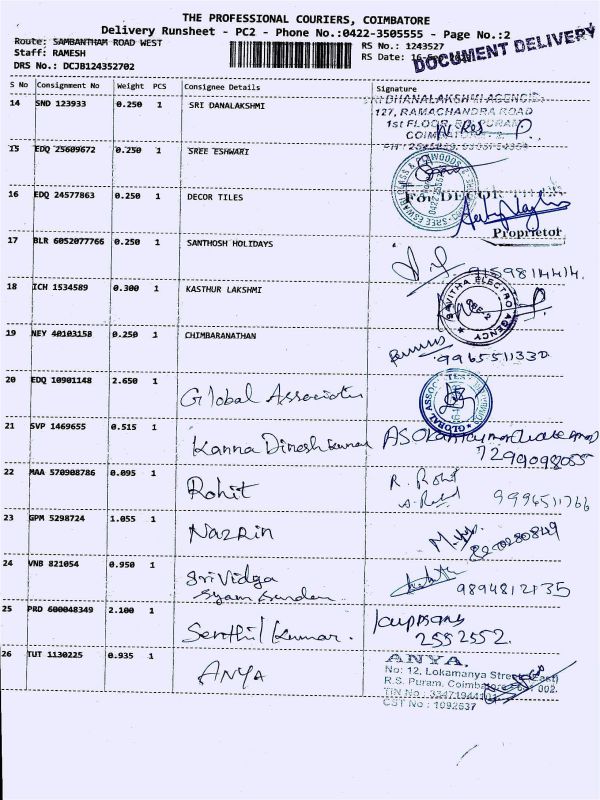 THE PROFESSIONAL COURIERS, COIMBATORE
Delivery Runsheet - PC2 - Phone No.:0422-3505555 - Page No.:2
Route: SAMBANTHAM ROAD WEST
Staff: RAMESH
DRS No.: DCJB124352702
RS No.: 1243527
RS Date: 16-
DOCUMENT DELIVERY
S No Consignment No Weight PCS Consignee Details Signature
14 SND 123933 0.250 1 SRI DANALAKSHMI
SRI DHANALAKSHMI AGENCIES
127, RAMACHANDRA ROAD
1st FLOOR, PURAM
15 EDQ 25609672 0.250 1 SREE ESHWARI
16 EDQ 24577863 0.250 1 DECOR TILES
For DECOR
Proprietor
17 BLR 6052077766 0.250 1 SANTHOSH HOLIDAYS
9159814414.
18 ICH 1534589 0.300 1 KASTHUR LAKSHMI
SAVITHA ELECTRO AGENCY
19 NEY 40103158 0.250 1 CHIMBARANATHAN
9965511330
20 EDQ 10901148 2.650 1 Global Associates
GLOBAL ASSOC
21 SVP 1469655 0.515 1 Kanna Dinesh Kumar
7299098055
22 MAA 570908786 0.095 1 Rohit
R. Rohit
9996511766
23 GPM 5298724 1.055 1 Nazrin
8220280849
24 VNB 821054 0.950 1 Sri Vidga
Syam Sundar
9894812135
25 PRD 600048349 2.100 1 Senthil Kumar.
2552552.
26 TUT 1130225 0.935 1 ANYA
ANYA.
No: 12, Lokamanya Street (East)
R.S. Puram, Coimbatore 002.
TIN No : 33471944101
CST No : 1092637